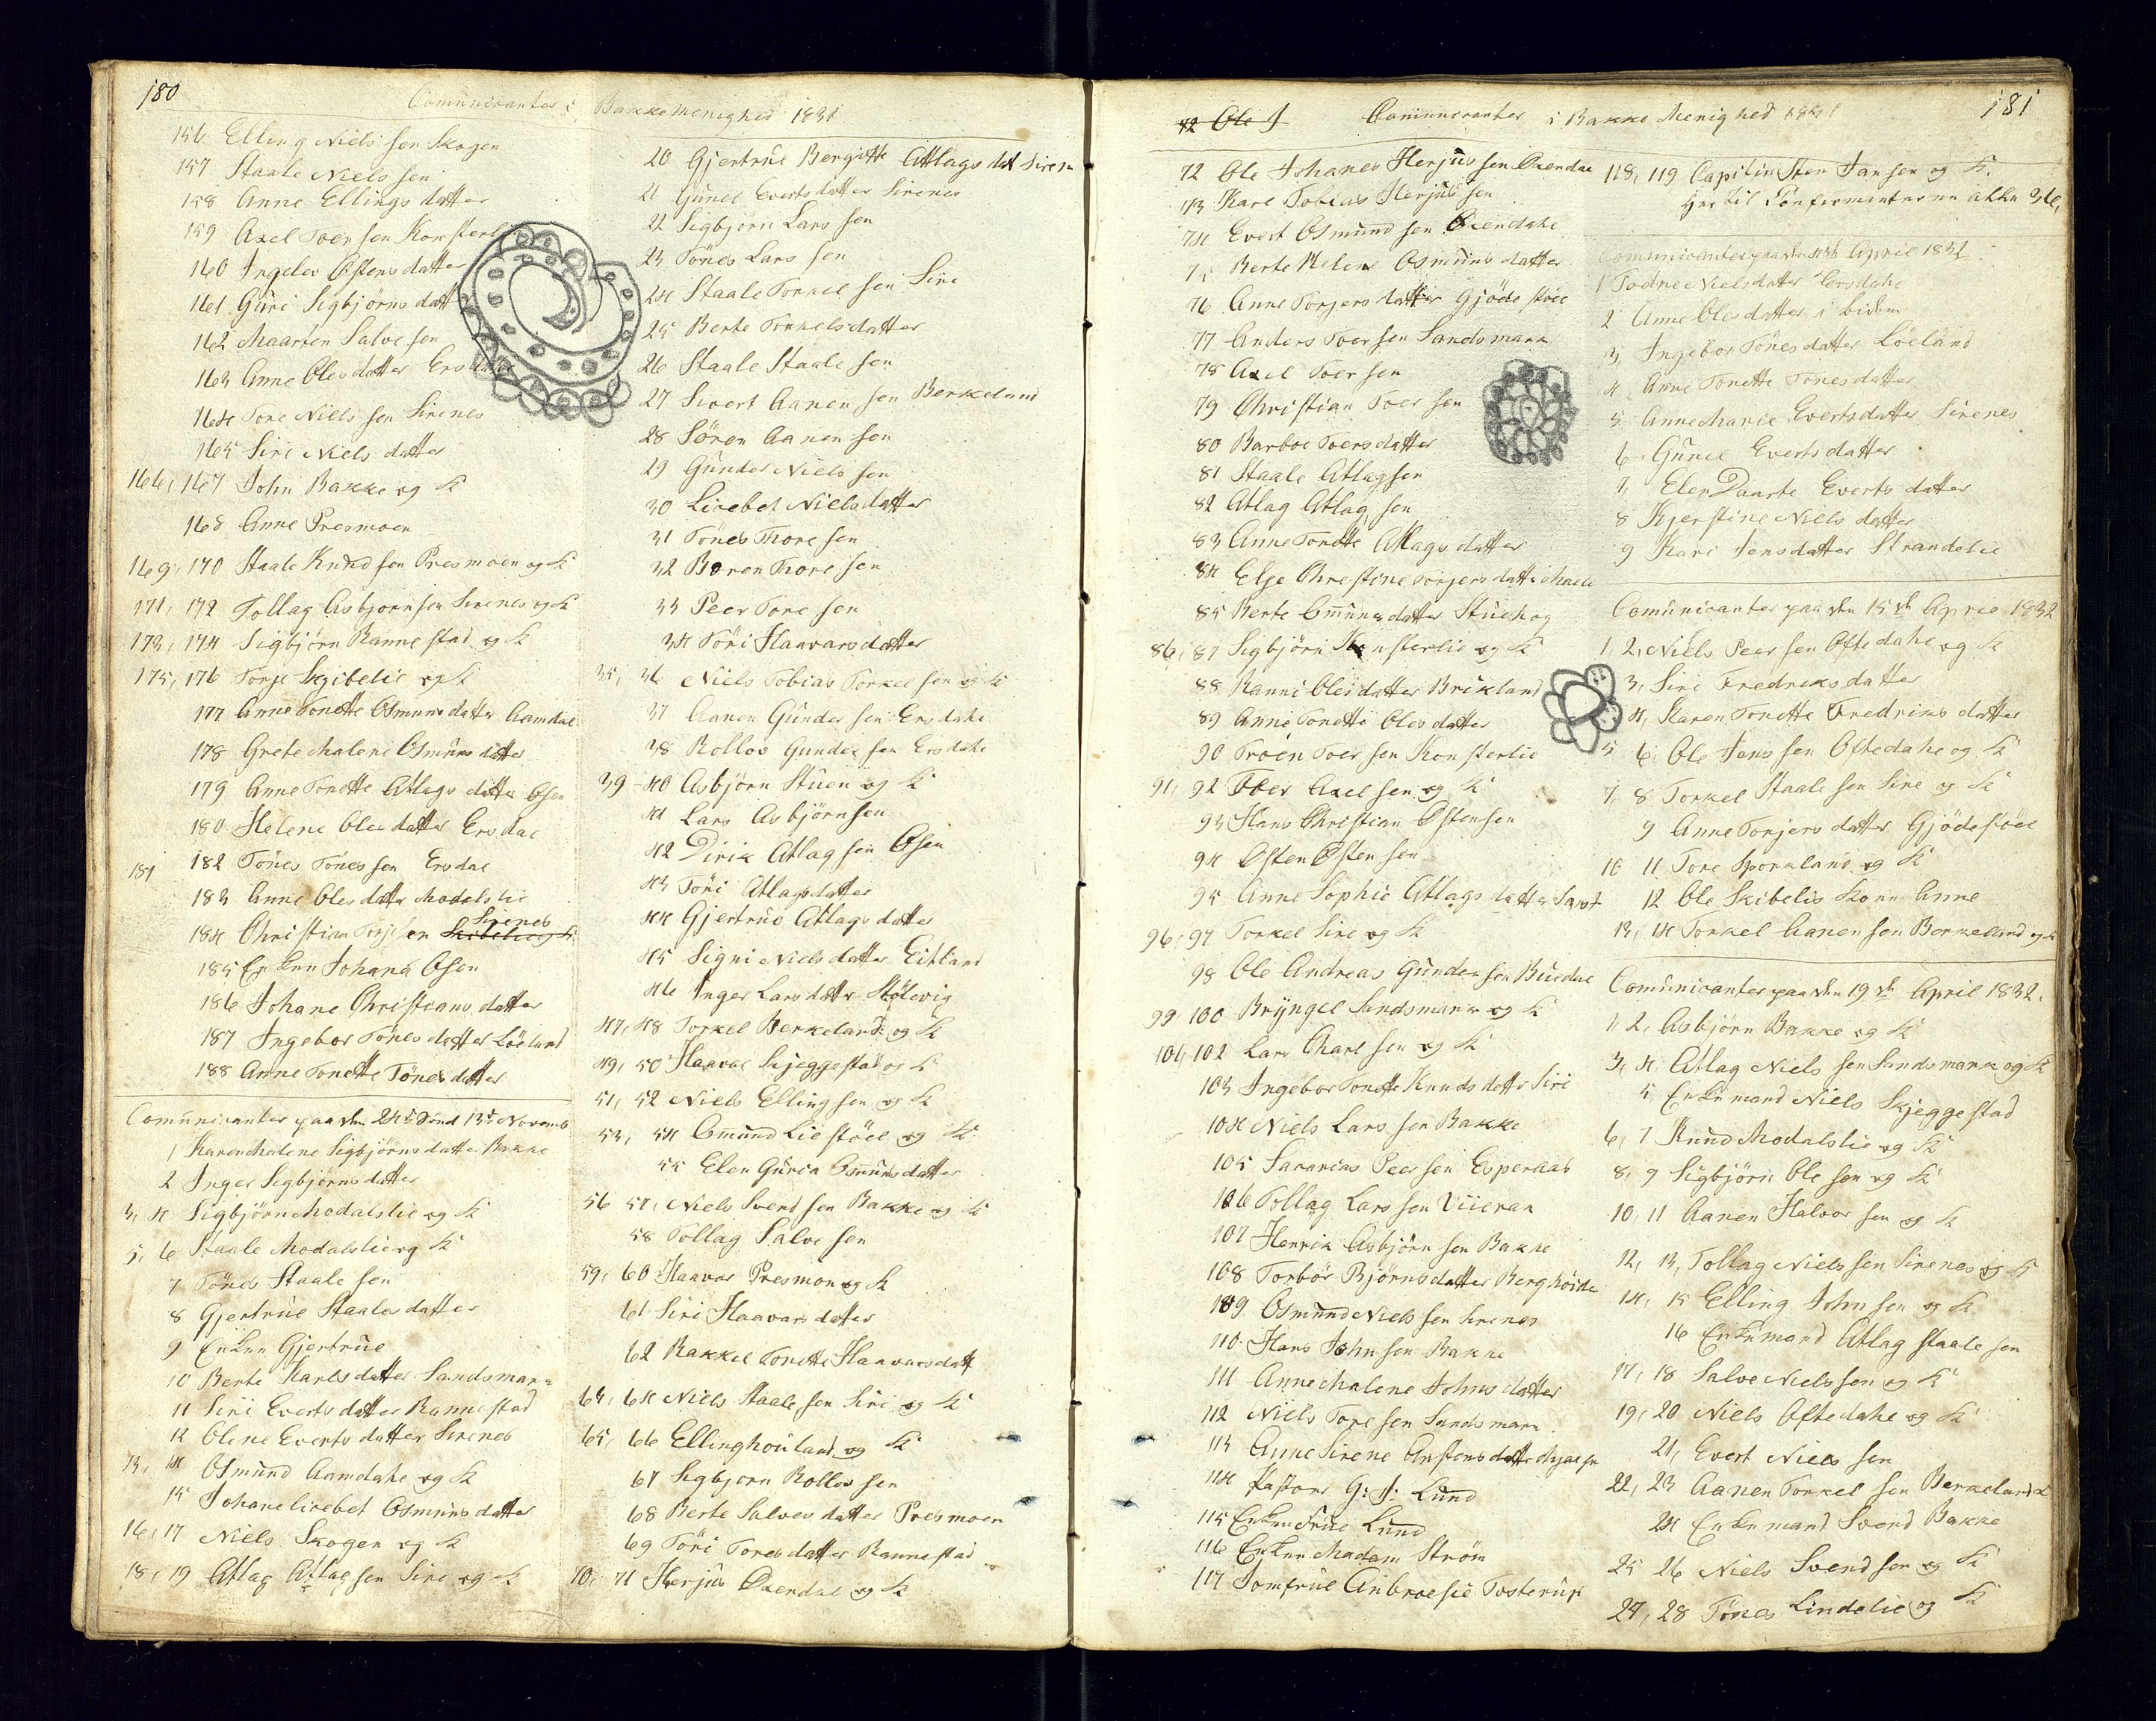 180
Comunicanter i Bakke Menighed 1831
156 Elling Nielssen Skogen
157 Staale Nielssen
158 Anne Ellingsdatter
159 Axel Toersen
160 Ingeler Østensdatter
161 Guri Sigbjørnsdatt
162 Maarten Salvesen
163 Anne Olesdatter
164 Tore Nielssen Sirenes
165 Siri Nielsdatter
166, 167 John Bakke og K
168 Anne Presmoen
169, 170 Staale Knudsen Presmoen og K
171, 172 Tollag Asbjornsen Sirenes og K
173, 174 Sigbjørn Rannestad og K
175, 176 Torje Skjibelie og K
177 Anne Tonette Osmunsdatter Aamdal
178 Grete Malene Osmunsdatter
179 Anne Tonette Atlagsdatter Osen
180 Helene Olesdatter Ersdal
181 182 Tönes Tönessen Ersdal
183 Anne Olesdatter Modalslie
184 Christian Torjesen Skibelie og K Sirenes
185 Enken Johana Osen
186 Johane Christiansdatter
187 Ingebor Tönesdatter Löeland
188 Anne Tonette Tönesdatter
Comunicanter paa den 24de Sönd 13de Novemb
1 Karen Malene Sigbjørnsdatter Bakke
2 Inger Sigbjørnsdatter
3, 4 Sigbjørn Modalslie og K
5, 6 Staale Modalslie og K
7 Tönes Staalesen
8 Gjertrue Staalesdatter
9 Enken Gjertrue
10 Berte Karlsdatter Sandsmark
11 Siri Evertsdatter Rannestad
12 Olene Evertsdatter Sirenes
13, 14 Osmund Aamdahe og K
15 Johane lisebet Osmunsdatter
16, 17 Niels Skogen og K
18, 19 Atlag Atlagsen Sire og K
20 Gjertrue Bergitte Atlagsdat Siren
21 Gunel Evertsdatter Sirenes
22 Sigbjørn Larssen
23 Tönes Larssen
24 Staale Torkelsen Sire
25 Berte Torkelsdatter
26 Staale Staalesen
27 Sivert Aanensen Berkeland
28 Sören Aanensen
29 Gunder Nielssen
30 Lisebet Nielsdatter
31 Tönes Thoresen
32 Boren Thoresen
33 Peer Toresen
34 Töri Haavarsdatter
35, 36 Niels Tobias Torkelsen og K
37 Aanen Gundersen Ersdahe
38 Rollov Gundersen Ersdahe
39 - 40 Asbjörn Stuen og K
41 Lars Asbjörnsen
42 Dirik Atlagsen Osen
43 Töri Atlagsdatter
44 Gjertrue Atlagsdatter
45 Signi Nielsdatter Eitland
46 Inger Larsdatter Stölsvig
47, 48 Torkel Berkeland og K
49, 50 Haavar Skjeggestad og K
51, 52 Niels Ellingsen og K
53, 54 Omund Liestöel og K
55 Elen Guria Omunsdatter
56 57, Niels Svendsen Bakke og K
58 Tollag Salvesen
59, 60 Haavar Presmon og K
61 Siri Haavarsdatter
62 Rakkel Tonette Haavarsdatt
63, 64 Niels Staalesen Siri og K
65, 66 Elling houland og K
67 Sigbjorn Rollovsen
68 Berte Salvesdatter Presmoen
69 Töri Toresdatter Rannestad
70, 71 Herjus Oxendal og K
72 Ole J
Comunicanter i Bakke Menighed 1831
181
72 Ole Johanes Herjussen Oxendal
73 Karl Tobias Herjussen
74 Evert Osmundsen Oxendahe
75 Berte Helene Osmunsdatter
76 Anne Torjersdatter Gjödestöel
77 Anders Toersen Sandsmark
78 Axel Toersen
79 Christian Toersen
80 Barboe Toersdatter
81 Staale Atlagsen
82 Atlag Atlagsen
83 Anne Tonette Atlagsdatter
84 Elje Chrestine Torjersdatte
85 Berte Omunsdatter Stuehog
86, 87 Sigbjörn Konsterlie og K
88 Ranni Olesdatter Brikland
89 Anne Tonette Olesdatter
90 Troen Toersen Konsterlie
91, 92 Toer Axelsen og K
93 Hans Christian Østensen
94 Østen Østensen
95 Anne Sophie Atlagsdatter
96, 97 Torkel Sire og K
98 Ole Andreas Gundersen Buedal
99, 100 Bryngel Sandsmark og K
101, 102 Lars Charlsen og K
103 Ingebor Tonette Knudsdatter Siri
104 Niels Larssen Bakke
105 Sararias Peersen Esperaas
106 Tollag Larssen
107 Henrik Asbjörnsen Bakke
108 Torbör Bjørnsdatter Berghöide
109 Osmund Nielssen Sirenes
110 Hans Johnsen Bakke
111 Anne Malene Johnsdatter
112 Niels Toresen Sandsmark
113 Anne Sirene
114 Pastoer G: J: Lund
115 Enken Frue Lund
116 Enken Madam Ström
117 Jomfrue Anbroesie Tosterup
118, 119 Capitin Sten Jansen og K
Comunicanter paa den 1ste April 1832
1 Todne Nielsdatter Ersdahe
2 Anne Olesdatter
3, Ingebor Tönesdatter Löeland
4 Anne Tonette Tönesdatter
5 Anne Marie Evertsdatter Sirenes
6 Gunel Evertsdatter
7, Elen Daarte Evertsdatter
8 Kjerstine Nielsdatter
9 Kari Jensdatter Strandelie
Comunicanter paa den 15de Aprie 1832
1, 2, Niels Peersen Oftedahe og K
3, Siri Fredriksdatter
4, Karen Tonette Fredriksdatter
5 6, Ole Jenssen Oftedahe og K
7, 8 Torkel Staalesen Sire og K
9 Anne Torjersdatter Gjödestöel
10 11 Tore Sporkland og K
12 Ole Skibelis Kone Anne
13, 14 Torkel Aanensen Berkeland og K
Comunicanter paa den 19de April 1832
1, 2, Asbjörn Bakke og K
3, 4, Atlag Nielssen Sandsmark og K
5 Enkemand Niels Skjeggestad
6, 7 Knud Modalslie og K
8, 9 Sigbjörn Olesen og K
10, 11 Aanen Halvorsen og K
12, 13, Tollag Nielssen Sirenes og K
14, 15 Elling Johnsen og K
16 Enkemand Atlag Staalesen
17, 18 Salve Nielssen og K
19, 20 Niels Oftedahe og K
21, Evert Nielssen
22, 23 Aanen Torkelsen Berkeland
24 Enkemand Svend Bakke
25 26 Niels Svendsen og K
27, 28 Tönes Lindelie og K